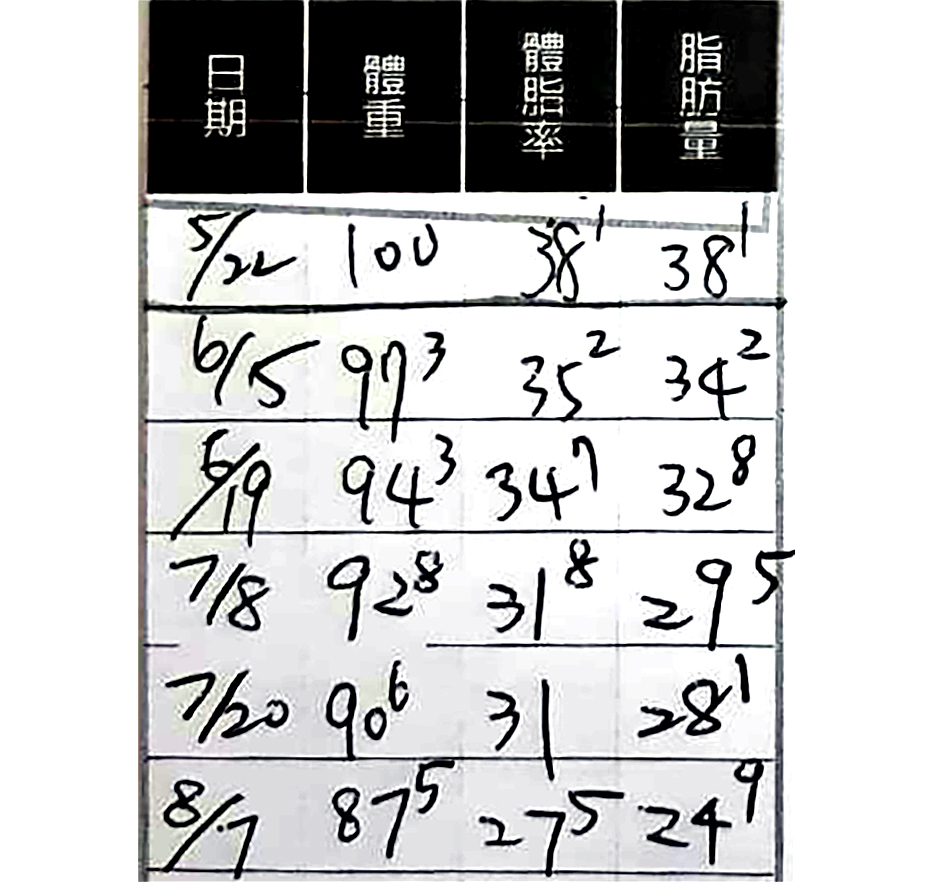 日期 體重 體脂率 脂肪量
5/22 100 38¹ 38¹
6/15 97³ 35² 34²
6/19 94³ 34⁷ 32⁸
7/8 92⁸ 31⁸ 29⁵
7/20 90⁶ 31 28¹
8/7 87⁵ 27⁵ 24⁹